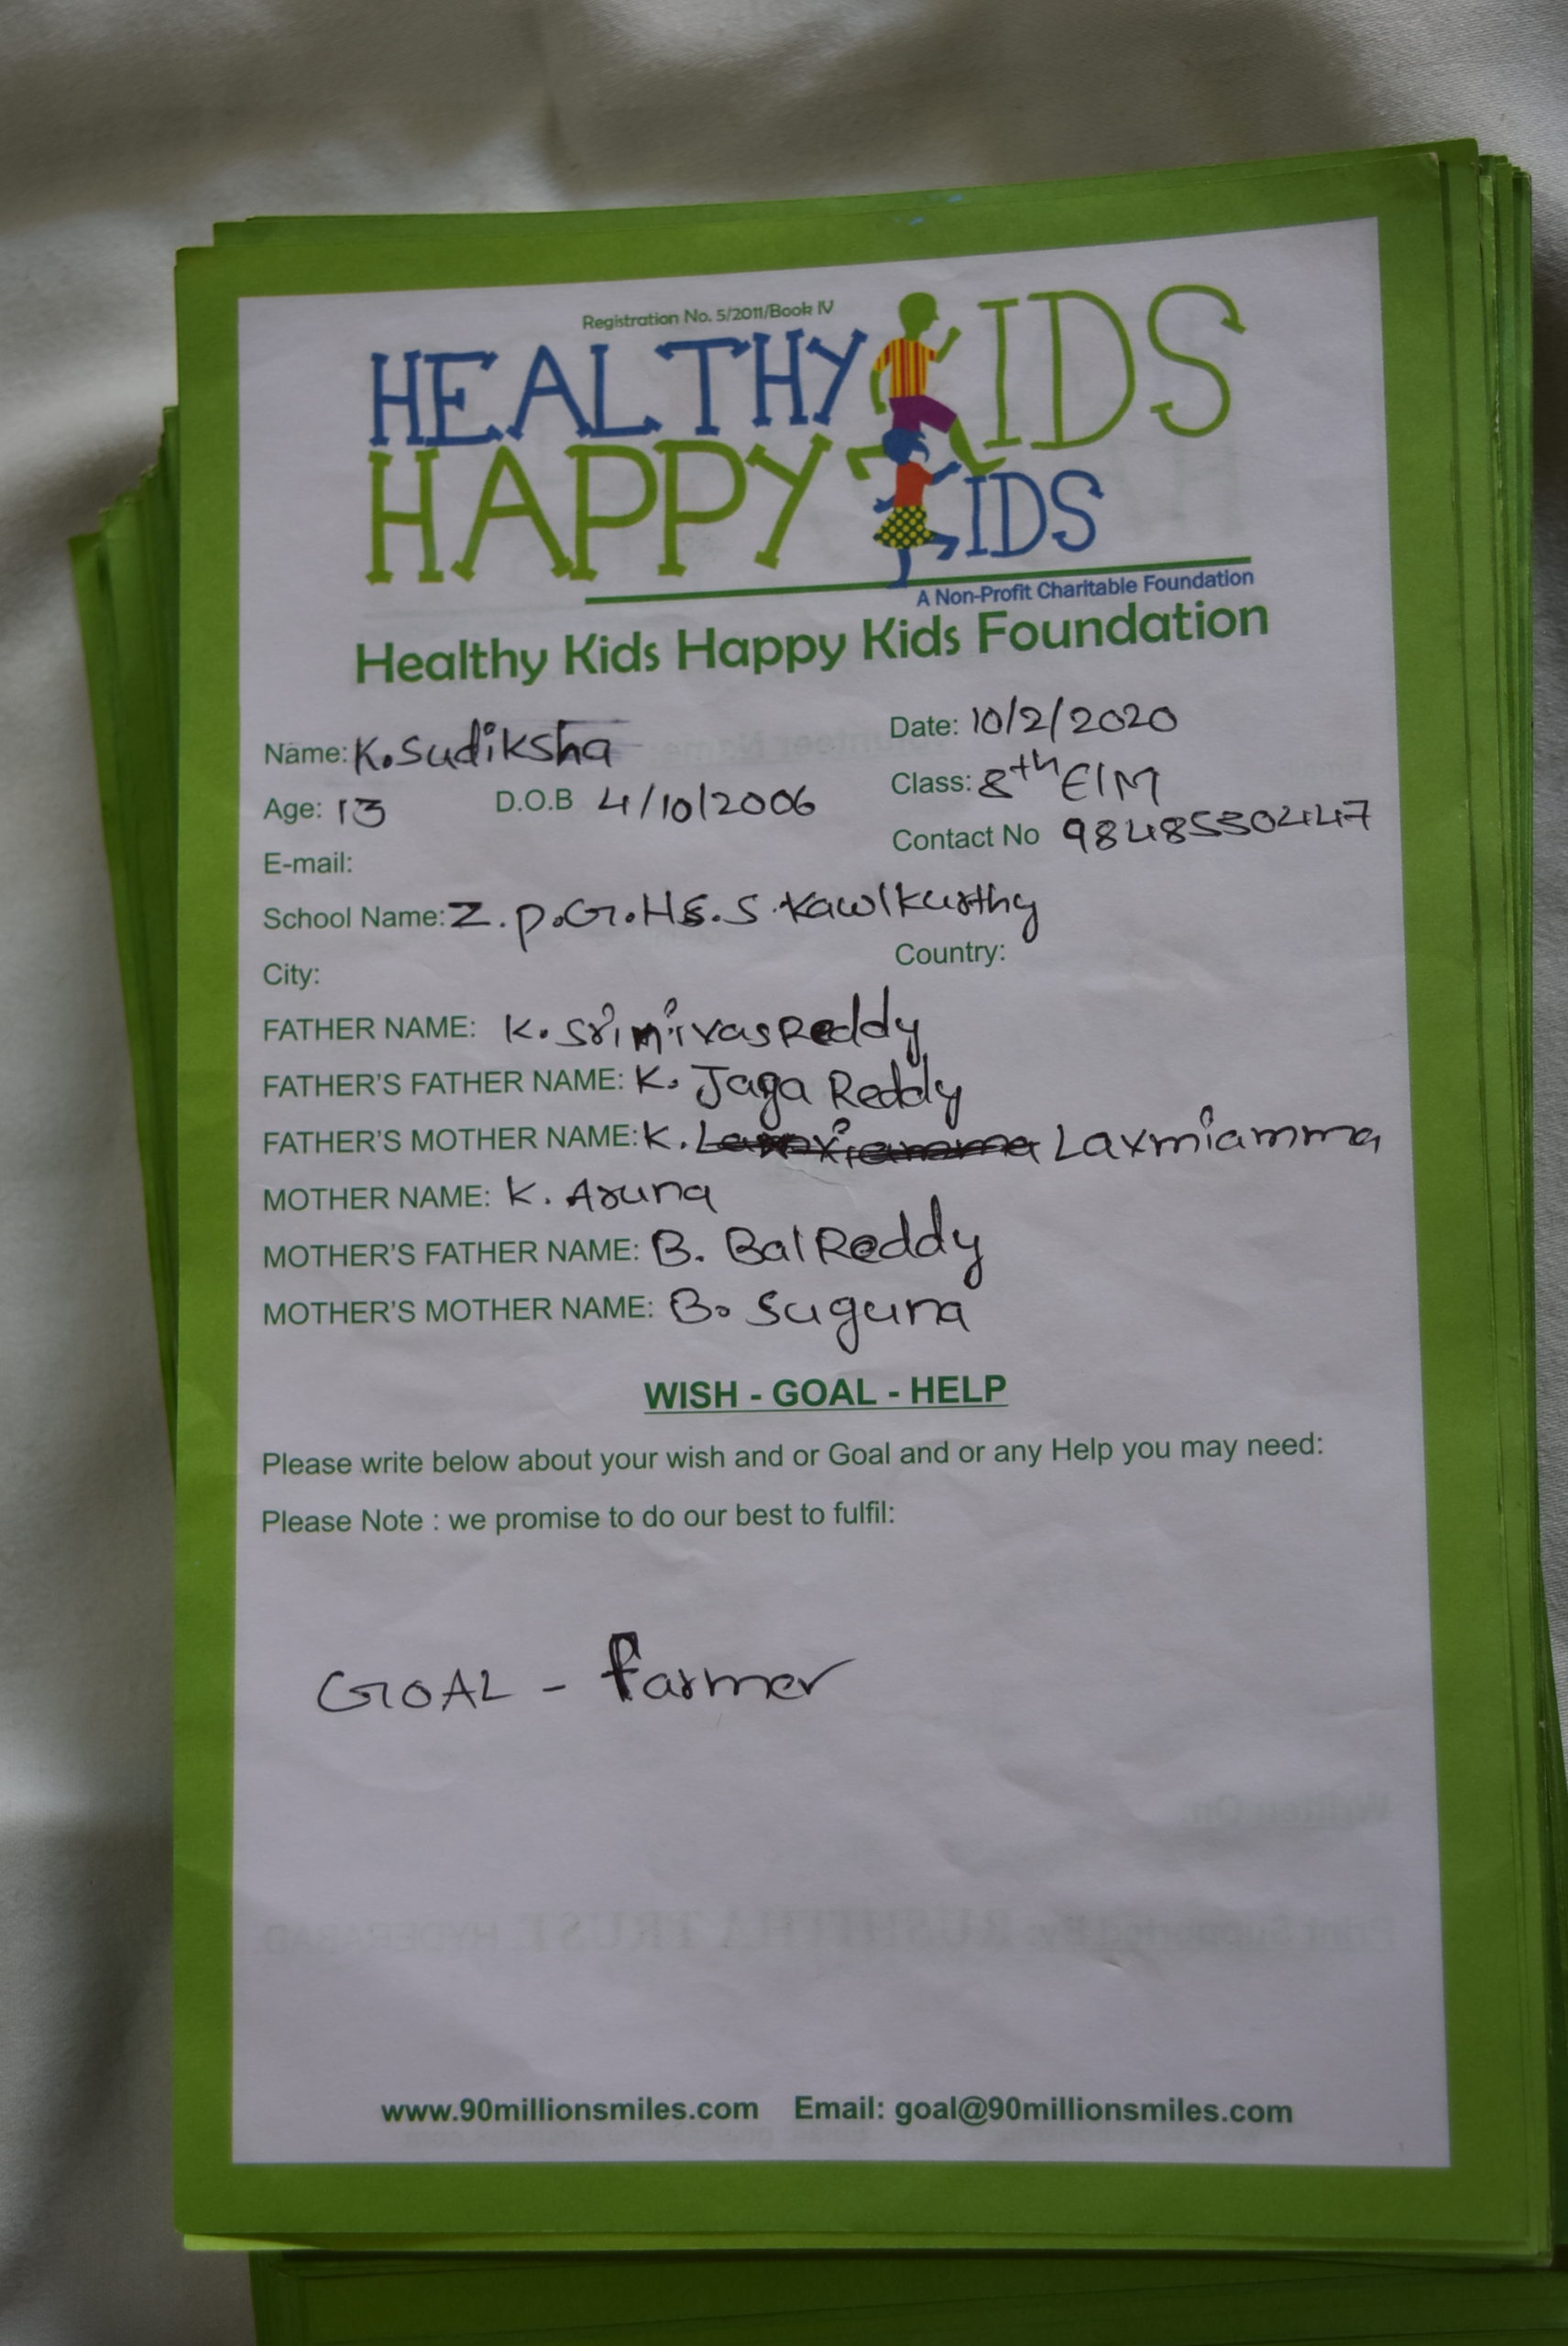 Registration No. 5/2011/Book IV
HEALTHY KIDS
HAPPY KIDS
A Non-Profit Charitable Foundation
Healthy Kids Happy Kids Foundation
Name: K. Sudiksha Date: 10/2/2020
Age: 13 D.O.B 4/10/2006 Class: 8th E/M
E-mail: Contact No 9848530447
School Name: Z.P.G.HS.S Kawlkurthy
City: Country:
FATHER NAME: K. Srinivas Reddy
FATHER'S FATHER NAME: K. Jaga Reddy
FATHER'S MOTHER NAME: K. Laxmiamma
MOTHER NAME: K. Aruna
MOTHER'S FATHER NAME: B. Bal Reddy
MOTHER'S MOTHER NAME: B. Suguna
WISH - GOAL - HELP
Please write below about your wish and or Goal and or any Help you may need:
Please Note : we promise to do our best to fulfil:
GOAL - farmer
www.90millionsmiles.com Email: goal@90millionsmiles.com